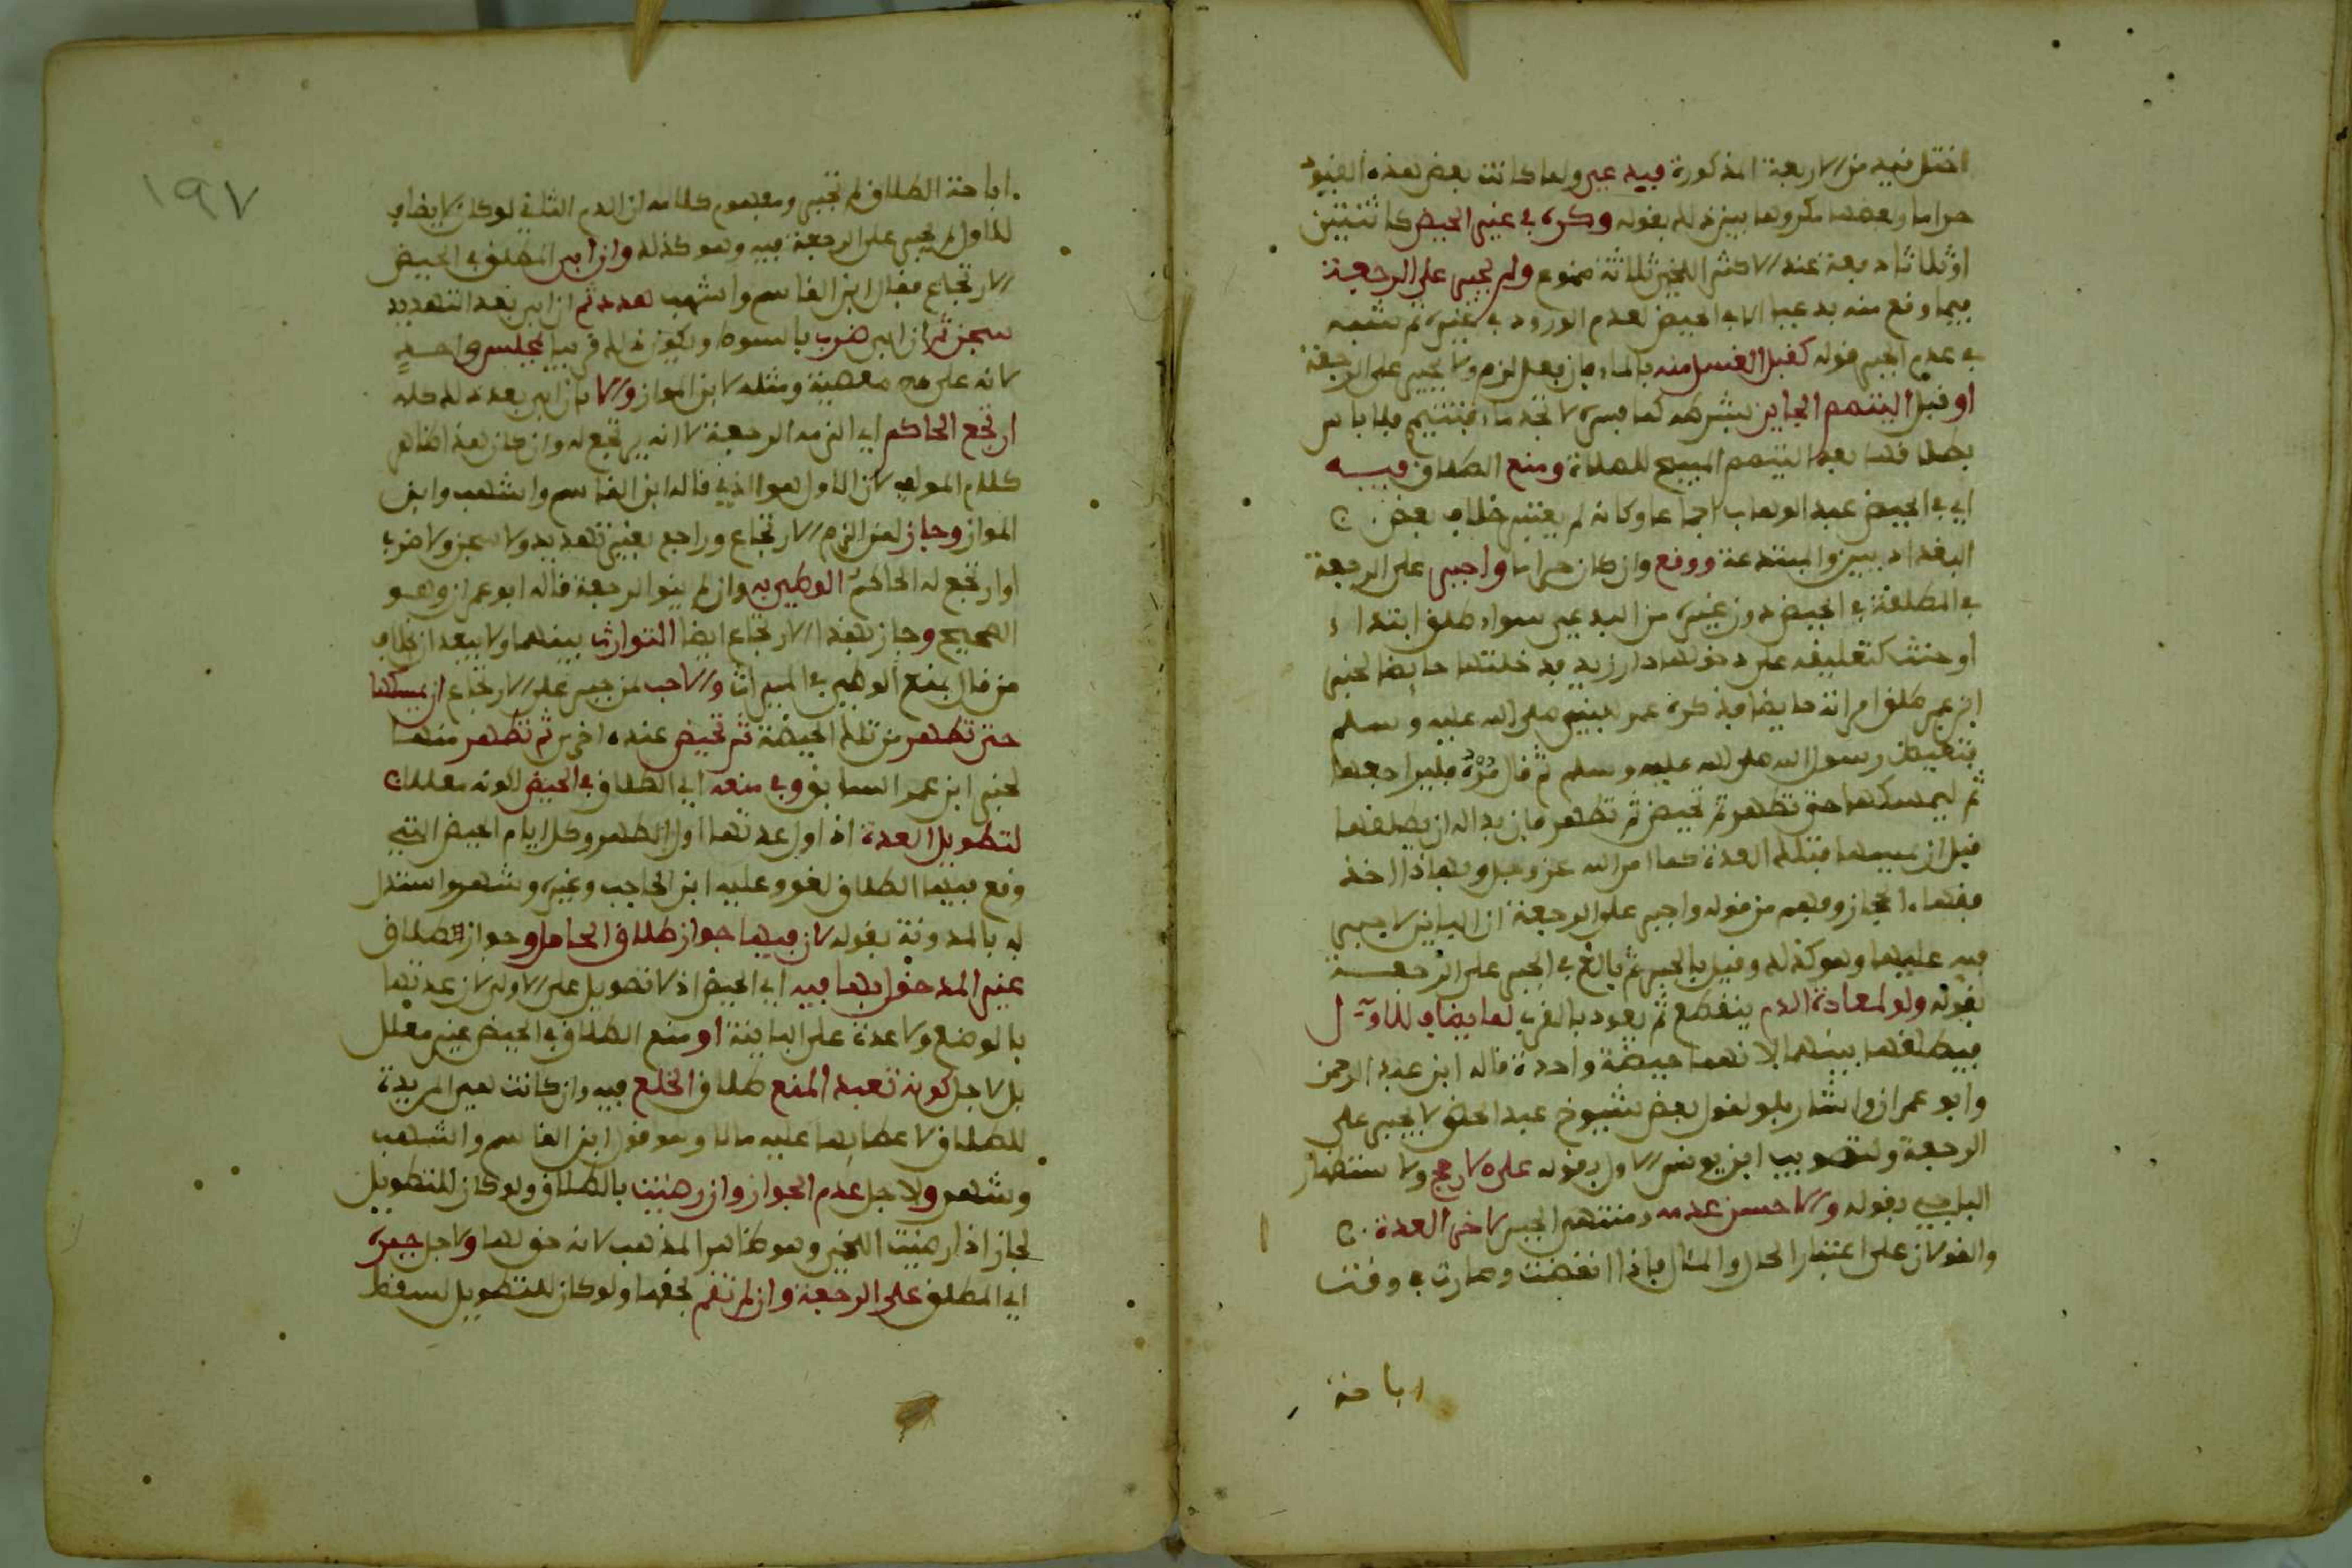 اختل فيد من الاربعة المذكورة فبدعي ولما كانت بعض هذه القيود
حراما وبعضها مكروها بين ذلك بقوله وكره في غير الحيض كاثنتين
او ثلاثا دبعة عند الاكثر اللخمي ثلاثة ممنوع ولم يجبر على الرجعة
فيما وقع منه بدعيا الا في الحيض لعدم الورود في غيره ثم شبه
في عدم الجبر قوله كقبل الغسل منه بالماء فان فعل لزم ولا يجبر على الرجعة
او قبل التيمم الجايز بشرطه كما فسره لا تجد ماء فتتيمم فلا باس
بطلاقها بعد التيمم المبيح للصلاة ومنع الطلاق فيه
اي في الحيض عبد الوهاب اجماعا وكانه لم يعتبر خلاف بعض
البغداديين والمبتدعة ووقع وان كان حراما واجبر على الرجعة
في المطلقة في الحيض دون غيره من البدعي سواء طلق ابتداء
او حنث كتعليقه على دخولها دار زيد فدخلتها حايضا لخبر
ابن عمر طلق امراته حايضا فذكره عمر للنبي صلى الله عليه وسلم
فتغيظ رسول الله صلى الله عليه وسلم ثم قال مره فليراجعها
ثم ليمسكها حتى تطهر ثم تحيض ثم تطهر فان بدا له ان يطلقها
قبل ان يمسها فتلك العدة كما امر الله عز وجل وبهذا اخذ
فقهاء الحجاز وفهم من قوله واجبر على الرجعة ان الباين لا يجبر
فيه عليها وهو كذلك وقيل بالجبر ثم بالغ في الجبر على الرجعة
بقوله ولو لمعادة الدم ينقطع ثم يعود بالقرب لما يضاف للاول
فيطلقها بينهما لانهما حيضة واحدة قاله ابن عبد الرحمن
وابو عمران واشار بلو لقول بعض شيوخ عبد الحق لا يجبر على
الرجعة ولتصويب ابن يونس الاول بقوله على الارجح ولاستظهار
الباجي بقوله والاحسن عدمه ومنتهى الجبر لاخر العدة
والقولان على اعتبار الحال والمئال فاذا انقضت وصارت في وقت
اباحة
١٩٧
اباحة الطلاق لم تجبر ومفهوم كلامه ان الدم الثاني لو كان لا يضاف
للاول لم يجبر على الرجعة فيه وهو كذلك وان ابى المطلق في الحيض
الارتجاع فقال ابن القاسم واشهب هدد ثم ان ابى بعد التهديد
سجن ثم ان ابى ضرب بالسوط ويكون ذلك قريبا بمجلس واحد
لانه على معصية ومثله لابن المواز والا بان ابى بعد ذلك كله
ارتجع الحاكم اي الزمه الرجعة لا انه يرتجع له وان كان هذا ظاهر
كلام المولف لان الاول هو الذي قاله ابن القاسم واشهب وابن
المواز وجاز لمن الزم الارتجاع وراجع بغير تهديد ولا سجن ولا ضرب
او ارتجع له الحاكم الوطء به وان لم ينو الرجعة قاله ابو عمران وهو
الصحيح وجاز بهذا الارتجاع ايضا التوارث بينهما ولا يبعد ان خلاف
من قال بمنع الوطء في الميراث والاحب لمن جبر على الارتجاع ان يمسكها
حتى تطهر من تلك الحيضة ثم تحيض عنده اخرى ثم تطهر منها
لخبر ابن عمر السابق وفي منعه اي الطلاق في الحيض لكونه معللا
لتطويل العدة اذ اول عدتها اول الطهر وكل ايام الحيض التي
وقع فيها الطلاق لغو وعليه ابن الحاجب وغيره وشهر واستدل
له بالمدونة بقوله لان فيها جواز طلاق الحامل وجواز طلاق
غير المدخول بها فيه اي الحيض اذ لا تطويل على الاولى لان عدتها
بالوضع ولا عدة على الثانية او منع الطلاق في الحيض غير معلل
بل لاجل كونه تعبد المنع طلاق الخلع فيه وان كانت هي المريدة
للطلاق لاعطايها عليه مالا وهو قول ابن القاسم واشهب
وشهر ولاجل عدم الجواز وان رضيت بالطلاق ولو كان للتطويل
لجاز اذا رضيت اللخمي وهو ظاهر المذهب لانه حق لها ولاجل جبره
اي المطلق على الرجعة وان لم تقم بحقها ولو كان للتطويل لسقط